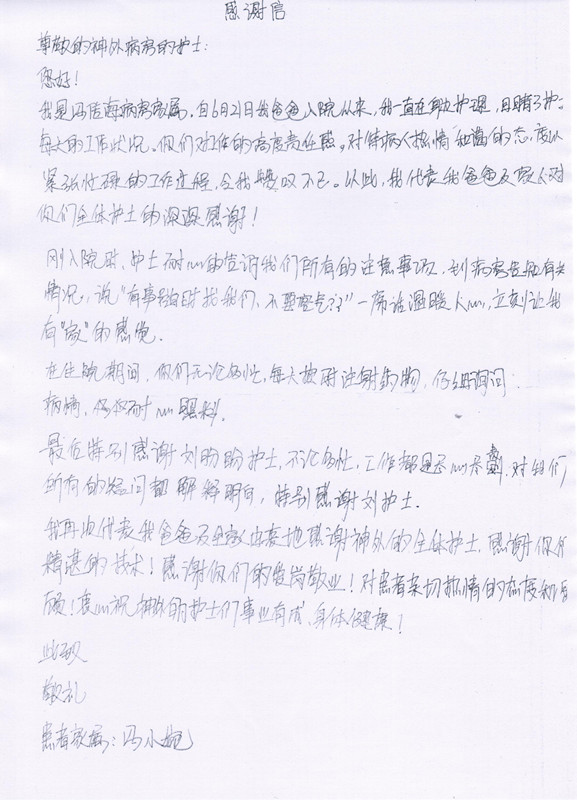 感谢信
尊敬的神外病房的护士:
您好!
我是冯 病房家属,自6月21日我爸爸入院以来,我一直在身边护理,目睹了护士
每天的工作状况。你们对工作的高度责任感,对待病人热情 的态度以
紧张忙碌的工作过程,令我赞叹不已。以此,我代表我爸爸及家人对
你们全体护士的深深感谢!
刚入院时,护士耐心的告诉我们所有的注意事项,到病房告知有关
情况,说"有事随时找我们,不要客气!"一席话温暖人心,立刻让我
有"家"的感觉.
在住院期间,你们无论多忙,每天按时注射药物,仔细询问
病情,
最后特别感谢刘盼盼护士,不论多忙,工作都是尽心尽 ,对我们
所有的疑问都解释明白,特别感谢刘护士.
我再次代表我爸爸及全家由衷地感谢神外的全体护士,感谢你们
精湛的技术!感谢你们的爱岗敬业!对患者亲切热情的态度和
顾!衷心祝 护士们事业有成,身体健康!
此致
敬礼
患者家属:冯小